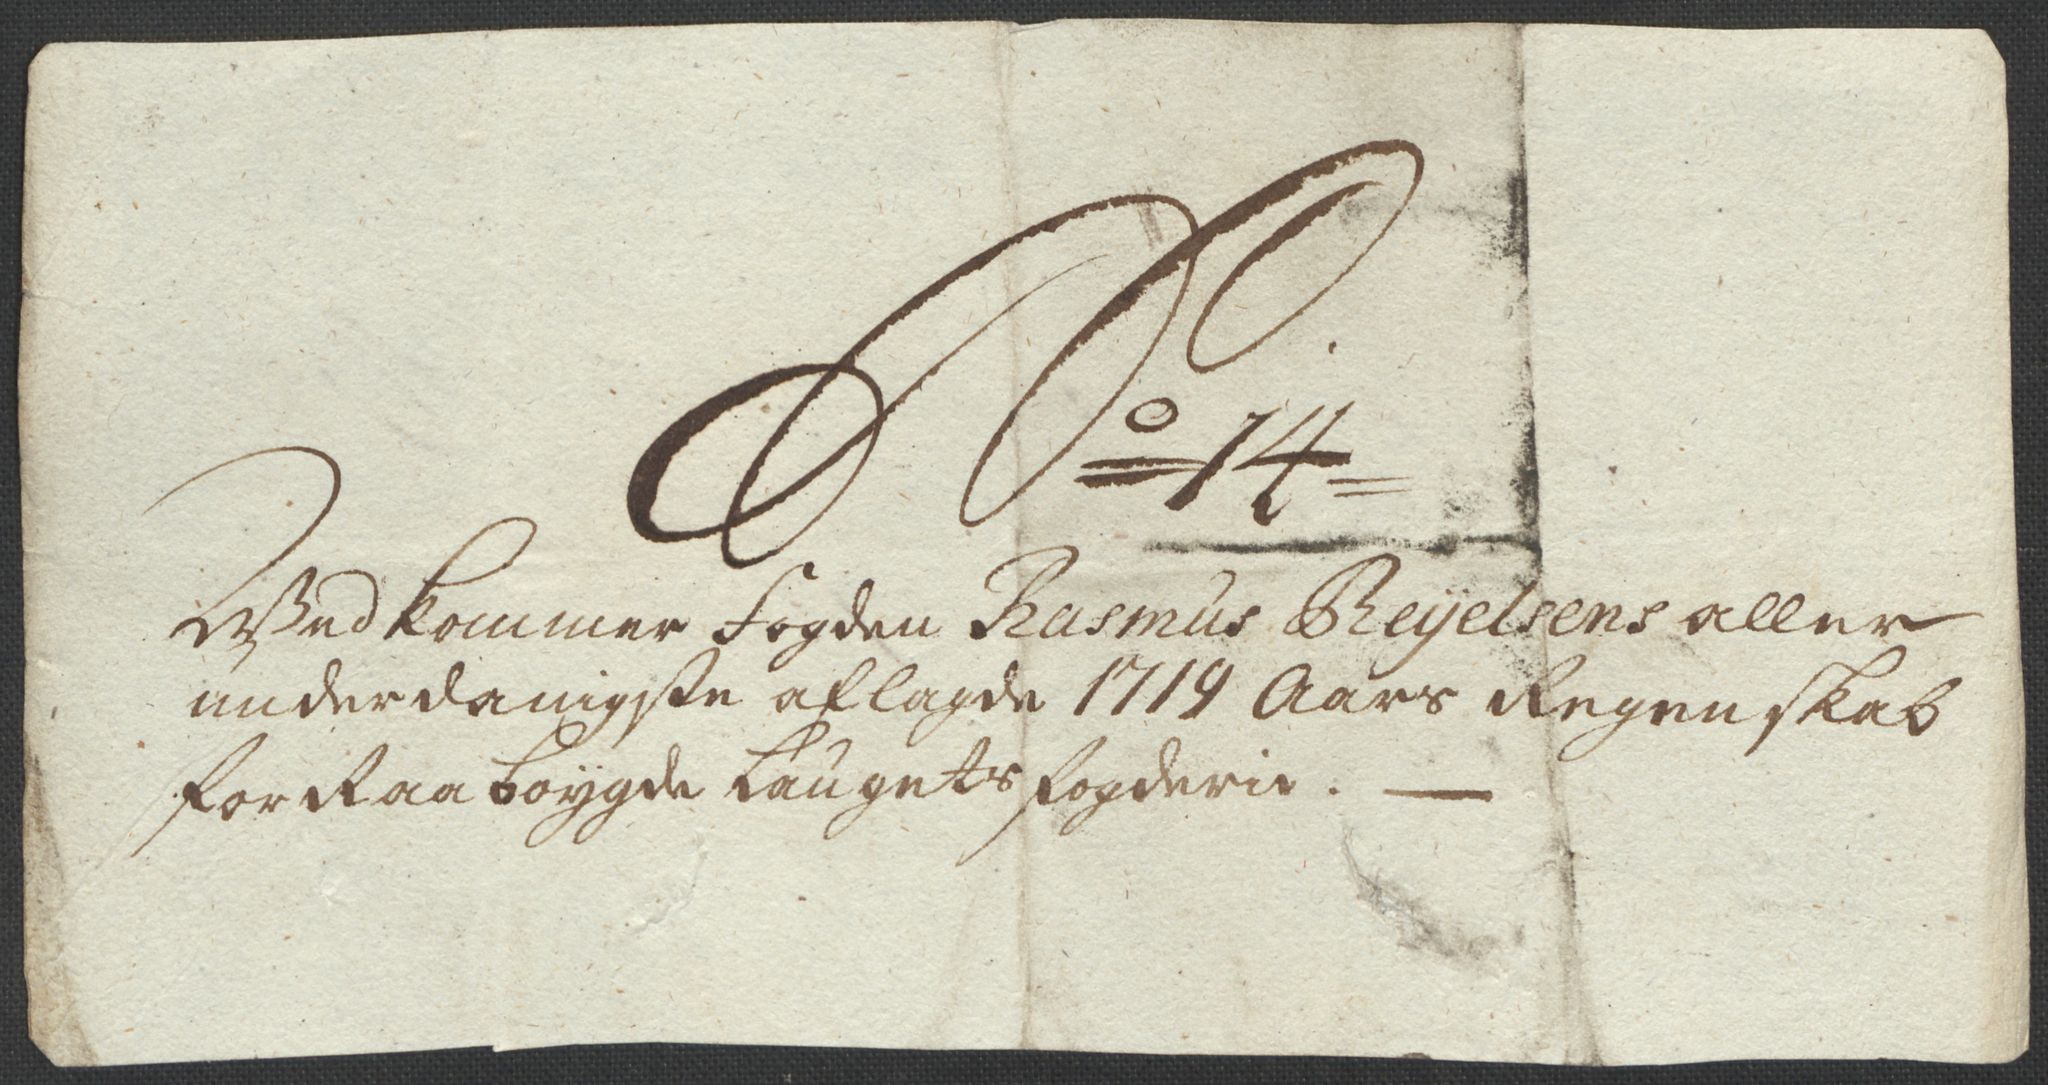 No 14
Vedkommer Fogden Rasmus Reyelsens aller
underdanigste aflagde 1719 Aars Regenskab
for Raabøygde Laugets fogderie.